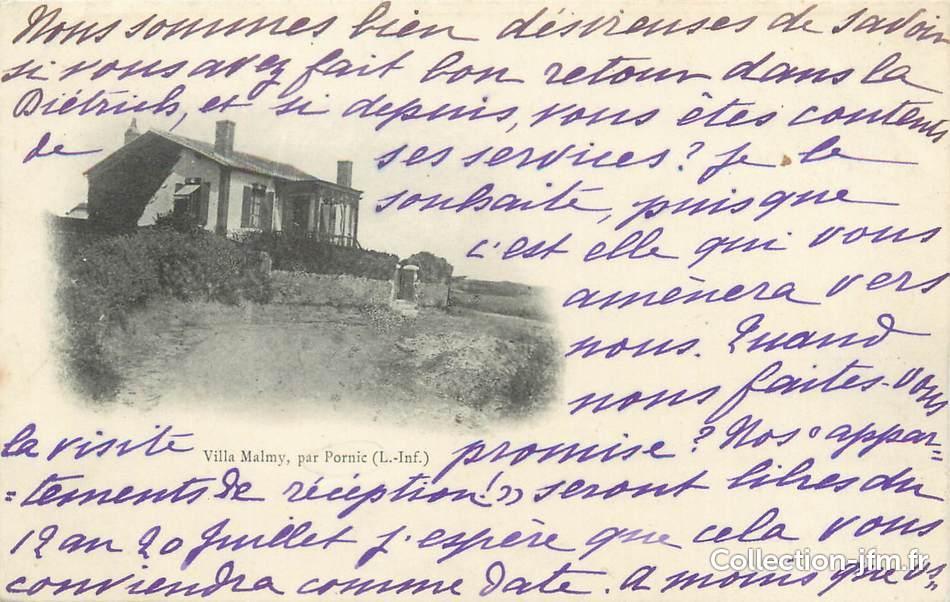 Nous sommes bien désireuses de savoir
si vous avez fait bon retour dans la
Diétrich, et si depuis, vous êtes contents
de ses services? Je le
souhaite, puisque
c'est elle qui vous
amènera vers
nous. Quand
nous faites-vous
la visite promise? Nos "appar-
=tements de réception!" seront libres du
12 au 20 Juillet j'espère que cela vous
conviendra comme date. A moins que vs
Villa Malmy, par Pornic (L.-Inf.)
Collection-jfm.fr